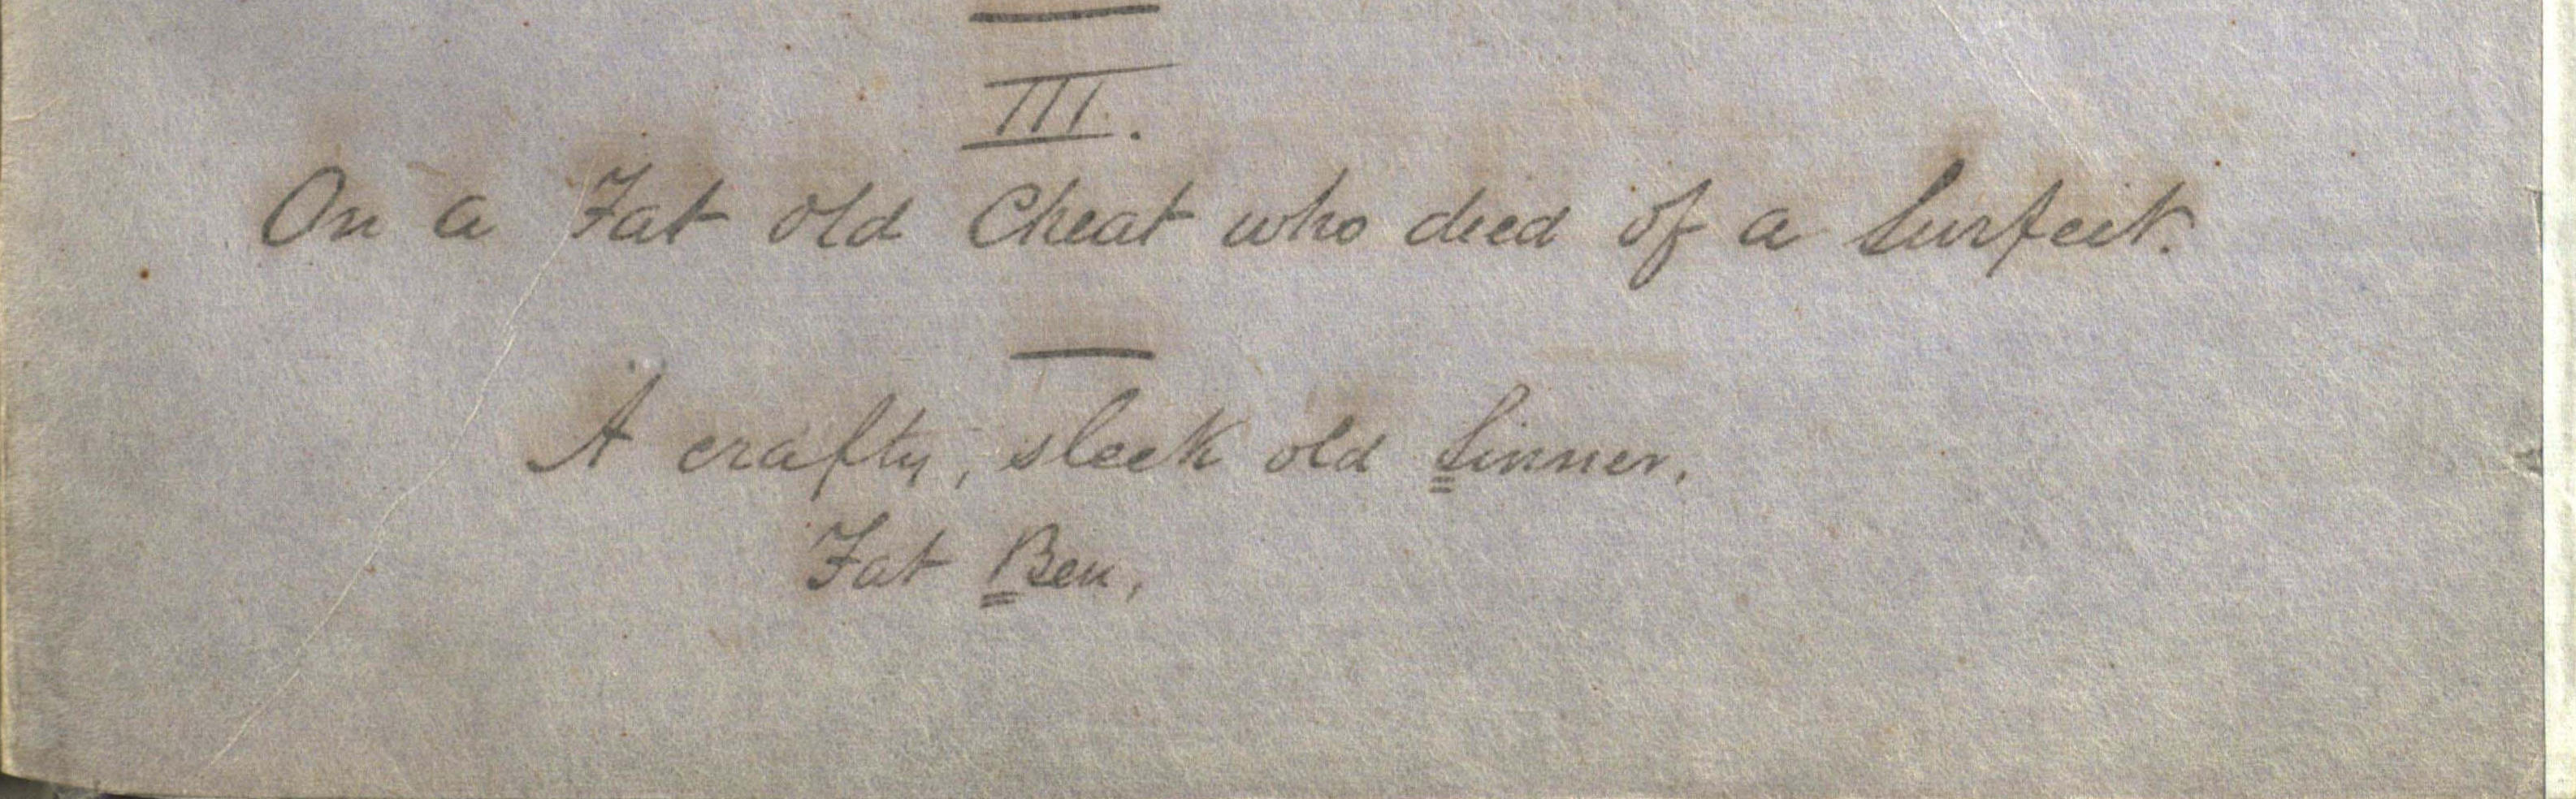 III.
On a Fat old Cheat who died of a Surfeit.
A crafty, sleek old Sinner,
Fat Ben,